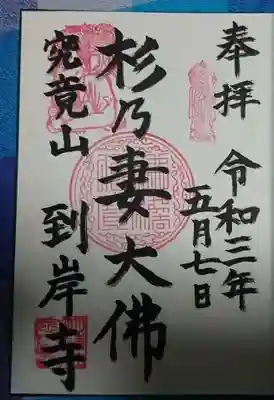 奉拝 令和三年
五月七日
杉乃妻大佛
究竟山 到岸寺